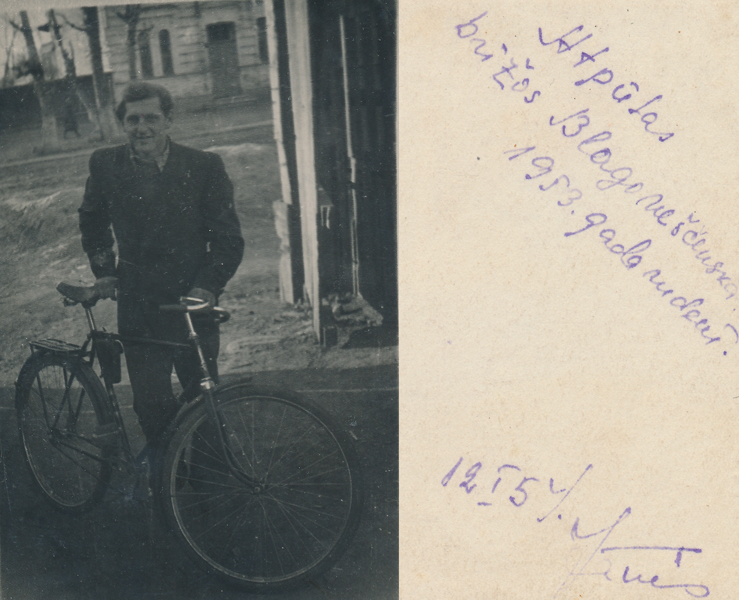 Atpūtas
brīžos Blagoveščenskā
1953. gada rudenī.
12 I 54.